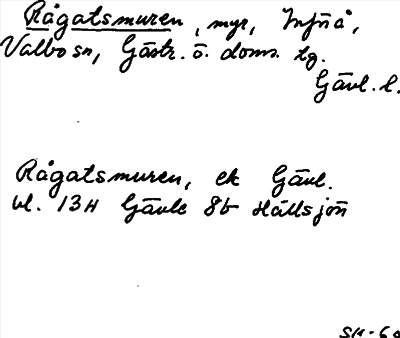 Rågatsmuren, myr,
Valbo sn, Gästr. ö. doms. tg.
Gävl. l.
Rågatsmuren, ek Gävl.
bl. 13H Gävle 8b Hällsjön